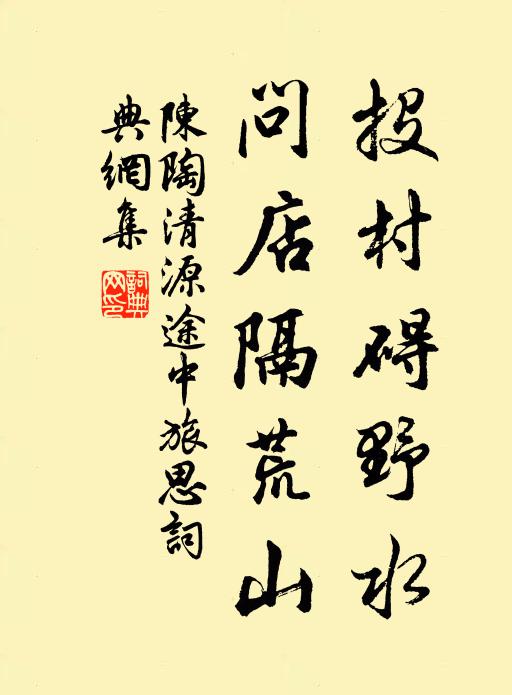 投村碍野水
問店隔荒山
陳陶清源途中旅思詞
典網集
詞典網印